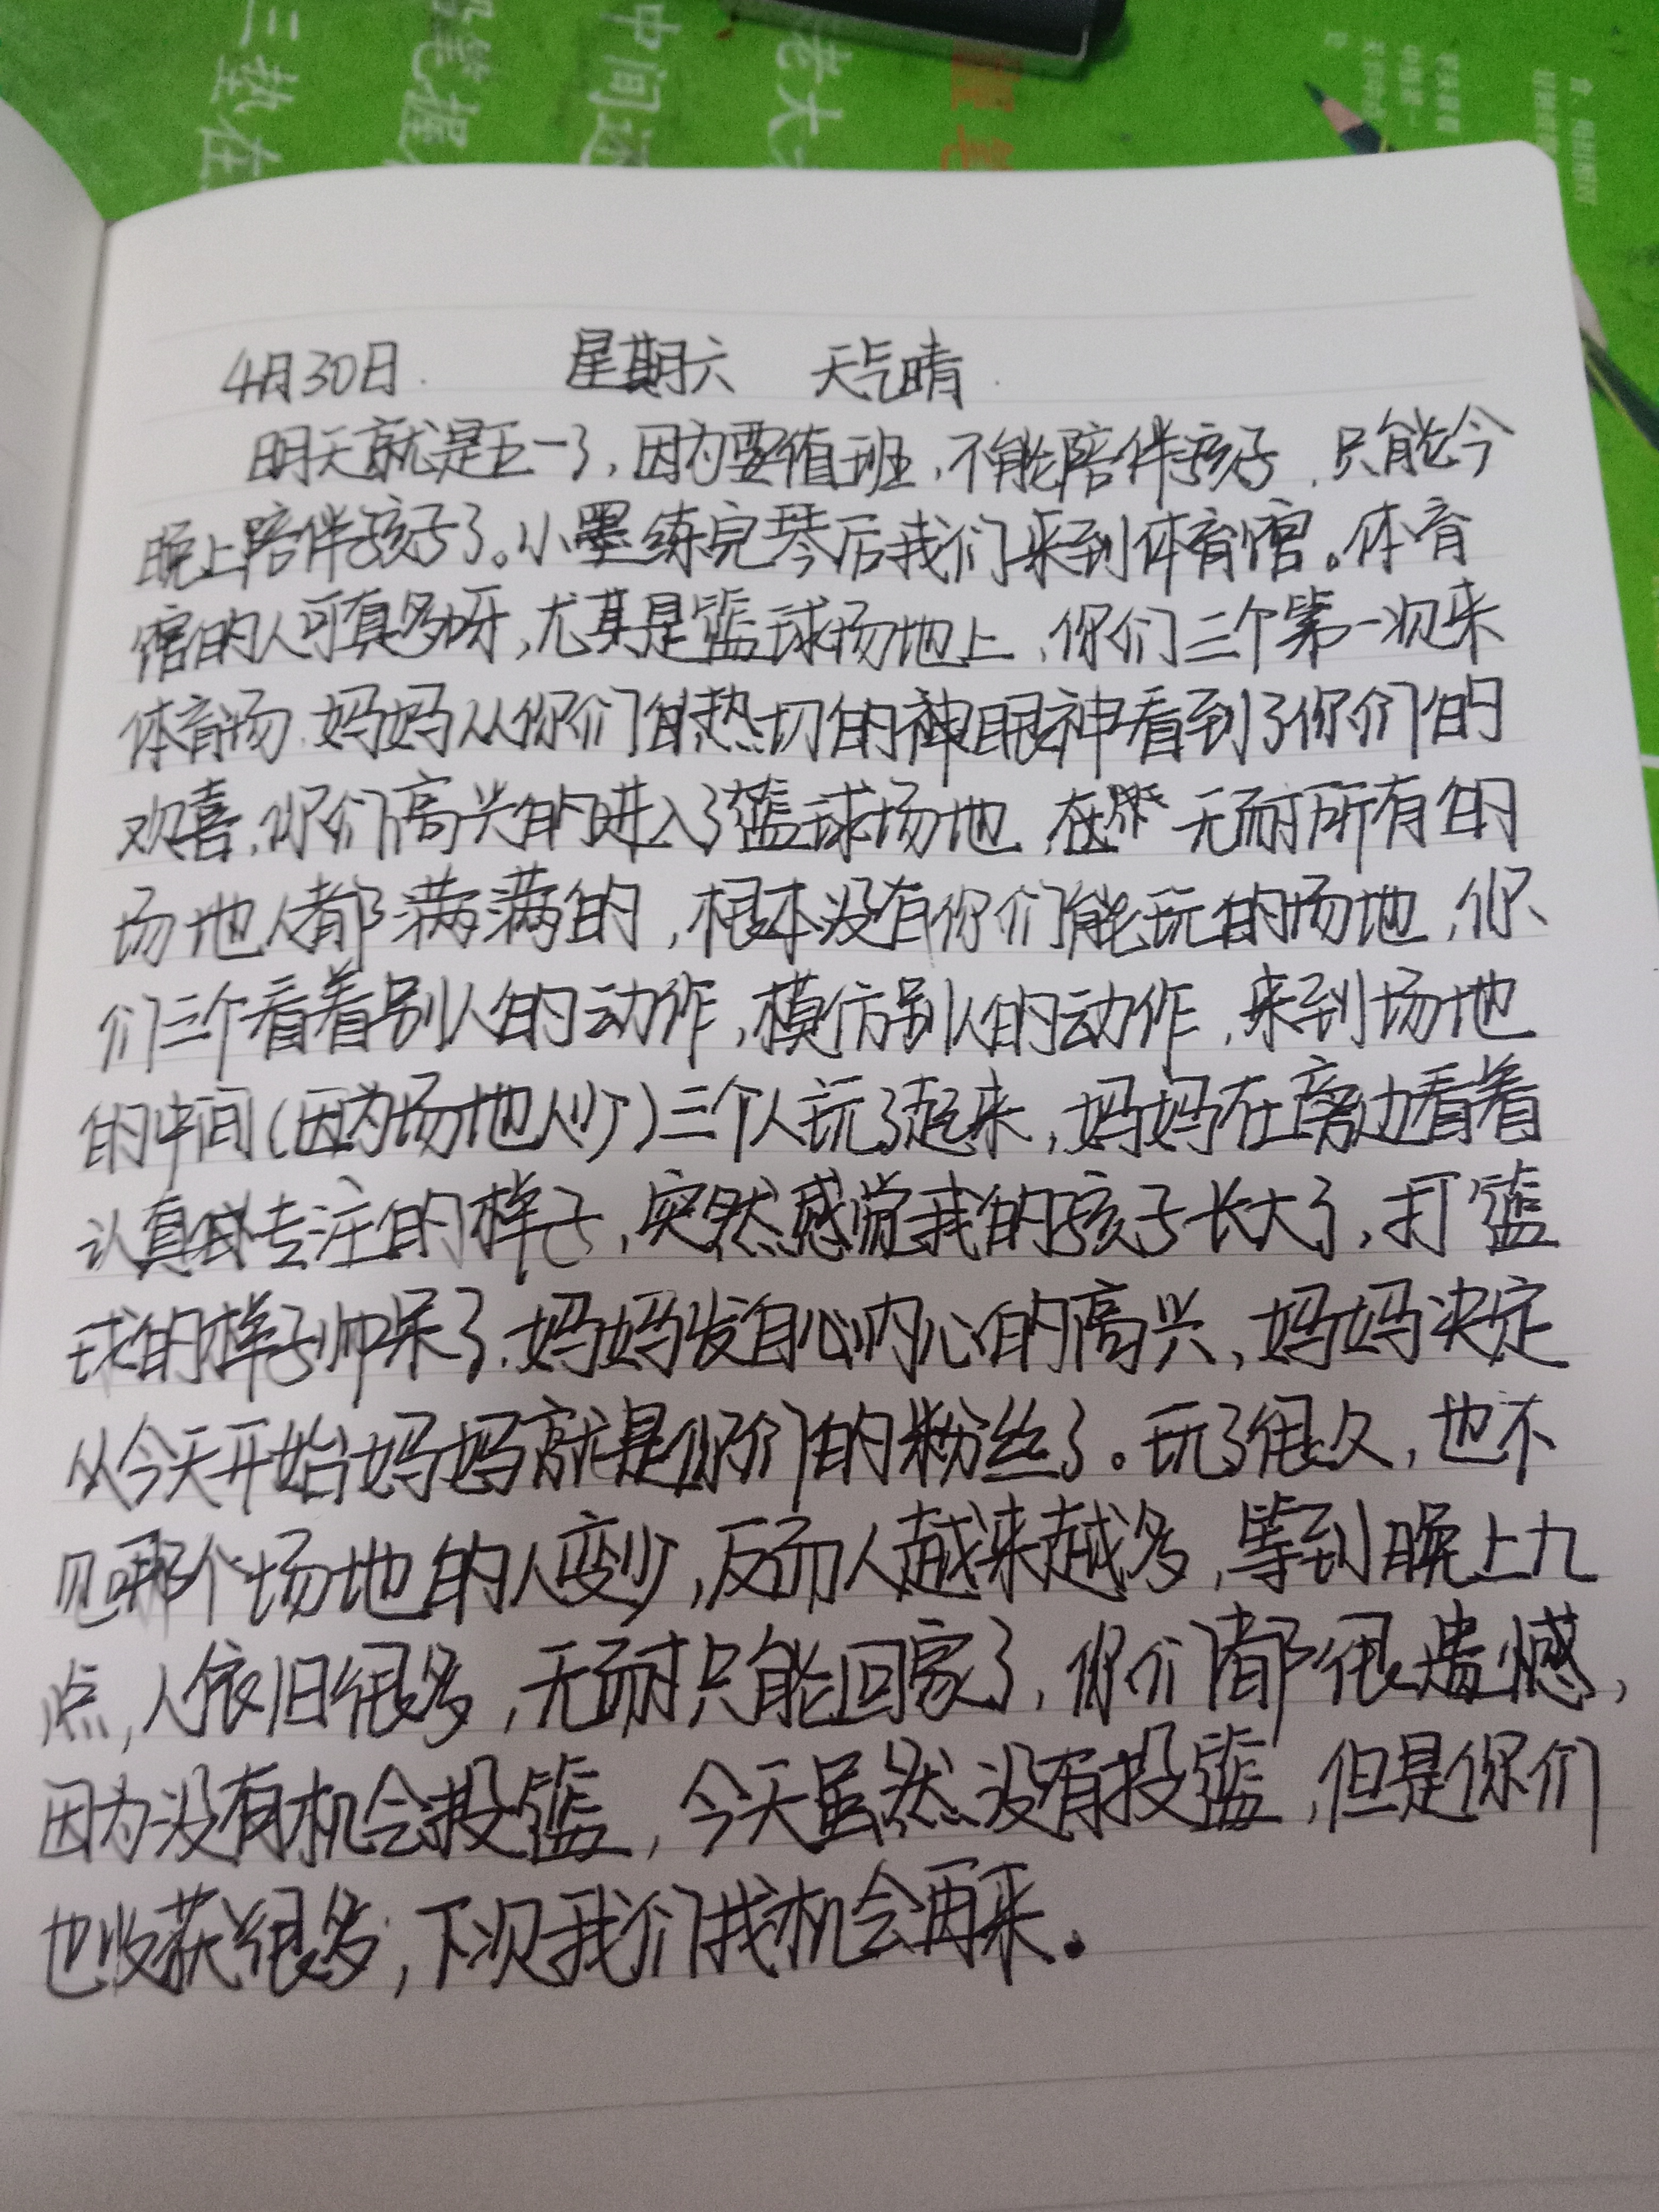 三 垫在
笔 握
中间
老大
4月30日. 星期六 天气晴.
明天就是五一了,因为要值班,不能陪伴孩子,只能今
晚上陪伴孩子了。小墨练完琴后我们来到体育馆。体育
馆的人可真多呀,尤其是篮球场地上,你们三个第一次来
体育场.妈妈从你们的热切的神眼神看到了你们的
欢喜,你们高兴的进入了篮球场地,在 无耐所有的
场地人都满满的,根本没有你们能玩的场地,你
们三个看着别人的动作,模仿别人的动作,来到场地
的中间(因为场地人少)三个人玩了起来,妈妈在旁边看着
认真 专注的样子,突然感觉我的孩子长大了,打篮
球的样子帅呆了.妈妈发自心内心的高兴,妈妈决定
从今天开始妈妈就是你们的粉丝了。玩了很久,也不
见哪个场地的人变少,反而人越来越多,等到晚上九
点,人依旧很多,无耐只能回家了,你们都很遗憾,
因为没有机会投篮,今天虽然没有投篮,但是你们
也收获很多,下次我们找机会再来.